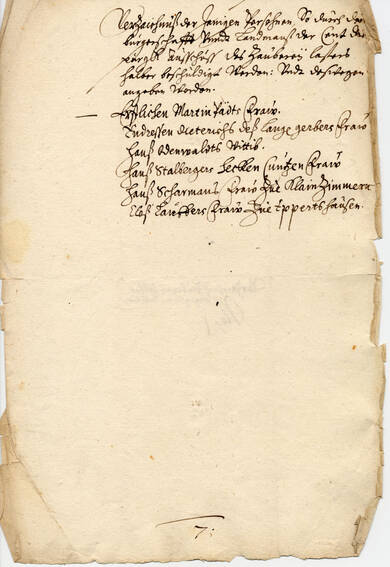 Verzaichnüß der Jenigen Persohnen, So durch die
burgerschafft Vnndt Landtmanß der Cent
Ausschuß des Zauberey lasters
halber beschuldigt worden: Vndt desswegen
angeben worden.
Erstlichen Martin Fraw.
Andressen Dieterichs deß Lange gerbers Fraw
Hanß Odenwaldts Wittib.
Hanß Stalbergers Hecklen Cuntzen Fraw
Hanß Scharmans Fraw Zue Klain Zimmern
Fraw Zue Eppertshausen.
7.